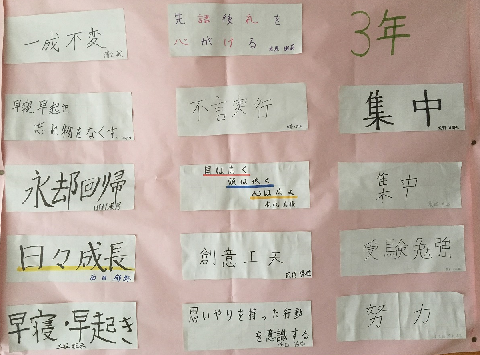 一成不変
先語後礼を
心がける
3年
早寝、早起き
忘れ物をなくす
不言実行
集中
永却回帰
目は高く
頭は低く
心は広く
集中
日々成長
創意工夫
受験勉強
早寝・早起き
思いやりを持った行動
を意識する
努力